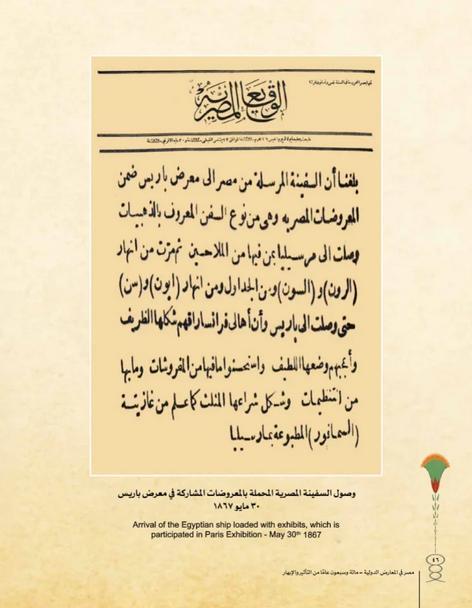 الوقايع المصرية
بلغنا أن السفينة المرسلة من مصر الى معرض باريس ضمن
المعروضات المصريه وهى من نوع السفن المعروف بالذهبيات
وصلت الى مرسيليا بمن فيها من الملاحين ثم مرّت من انهار
(الرون) و (السون) ومن الجداول ومن انهار (ايون) و (سن)
حتى وصلت الى باريس وأن أهالى فرانسا راقهم شكلها الظريف
وأعجبهم وضعها اللطيف واستحسنوا ما فيها من المفروشات وما بها
من التنظيمات وشكل شراعها المثلث كما علم من غازيتة
(السمافور) المطبوعة بمارسيليا
وصول السفينة المصرية المحملة بالمعروضات المشاركة في معرض باريس
٣٠ مايو ١٨٦٧
Arrival of the Egyptian ship loaded with exhibits, which is
participated in Paris Exhibition - May 30th 1867
٤٦
مصر في المعارض الدولية – مائة وسبعون عامًا من التأثير والإبهار